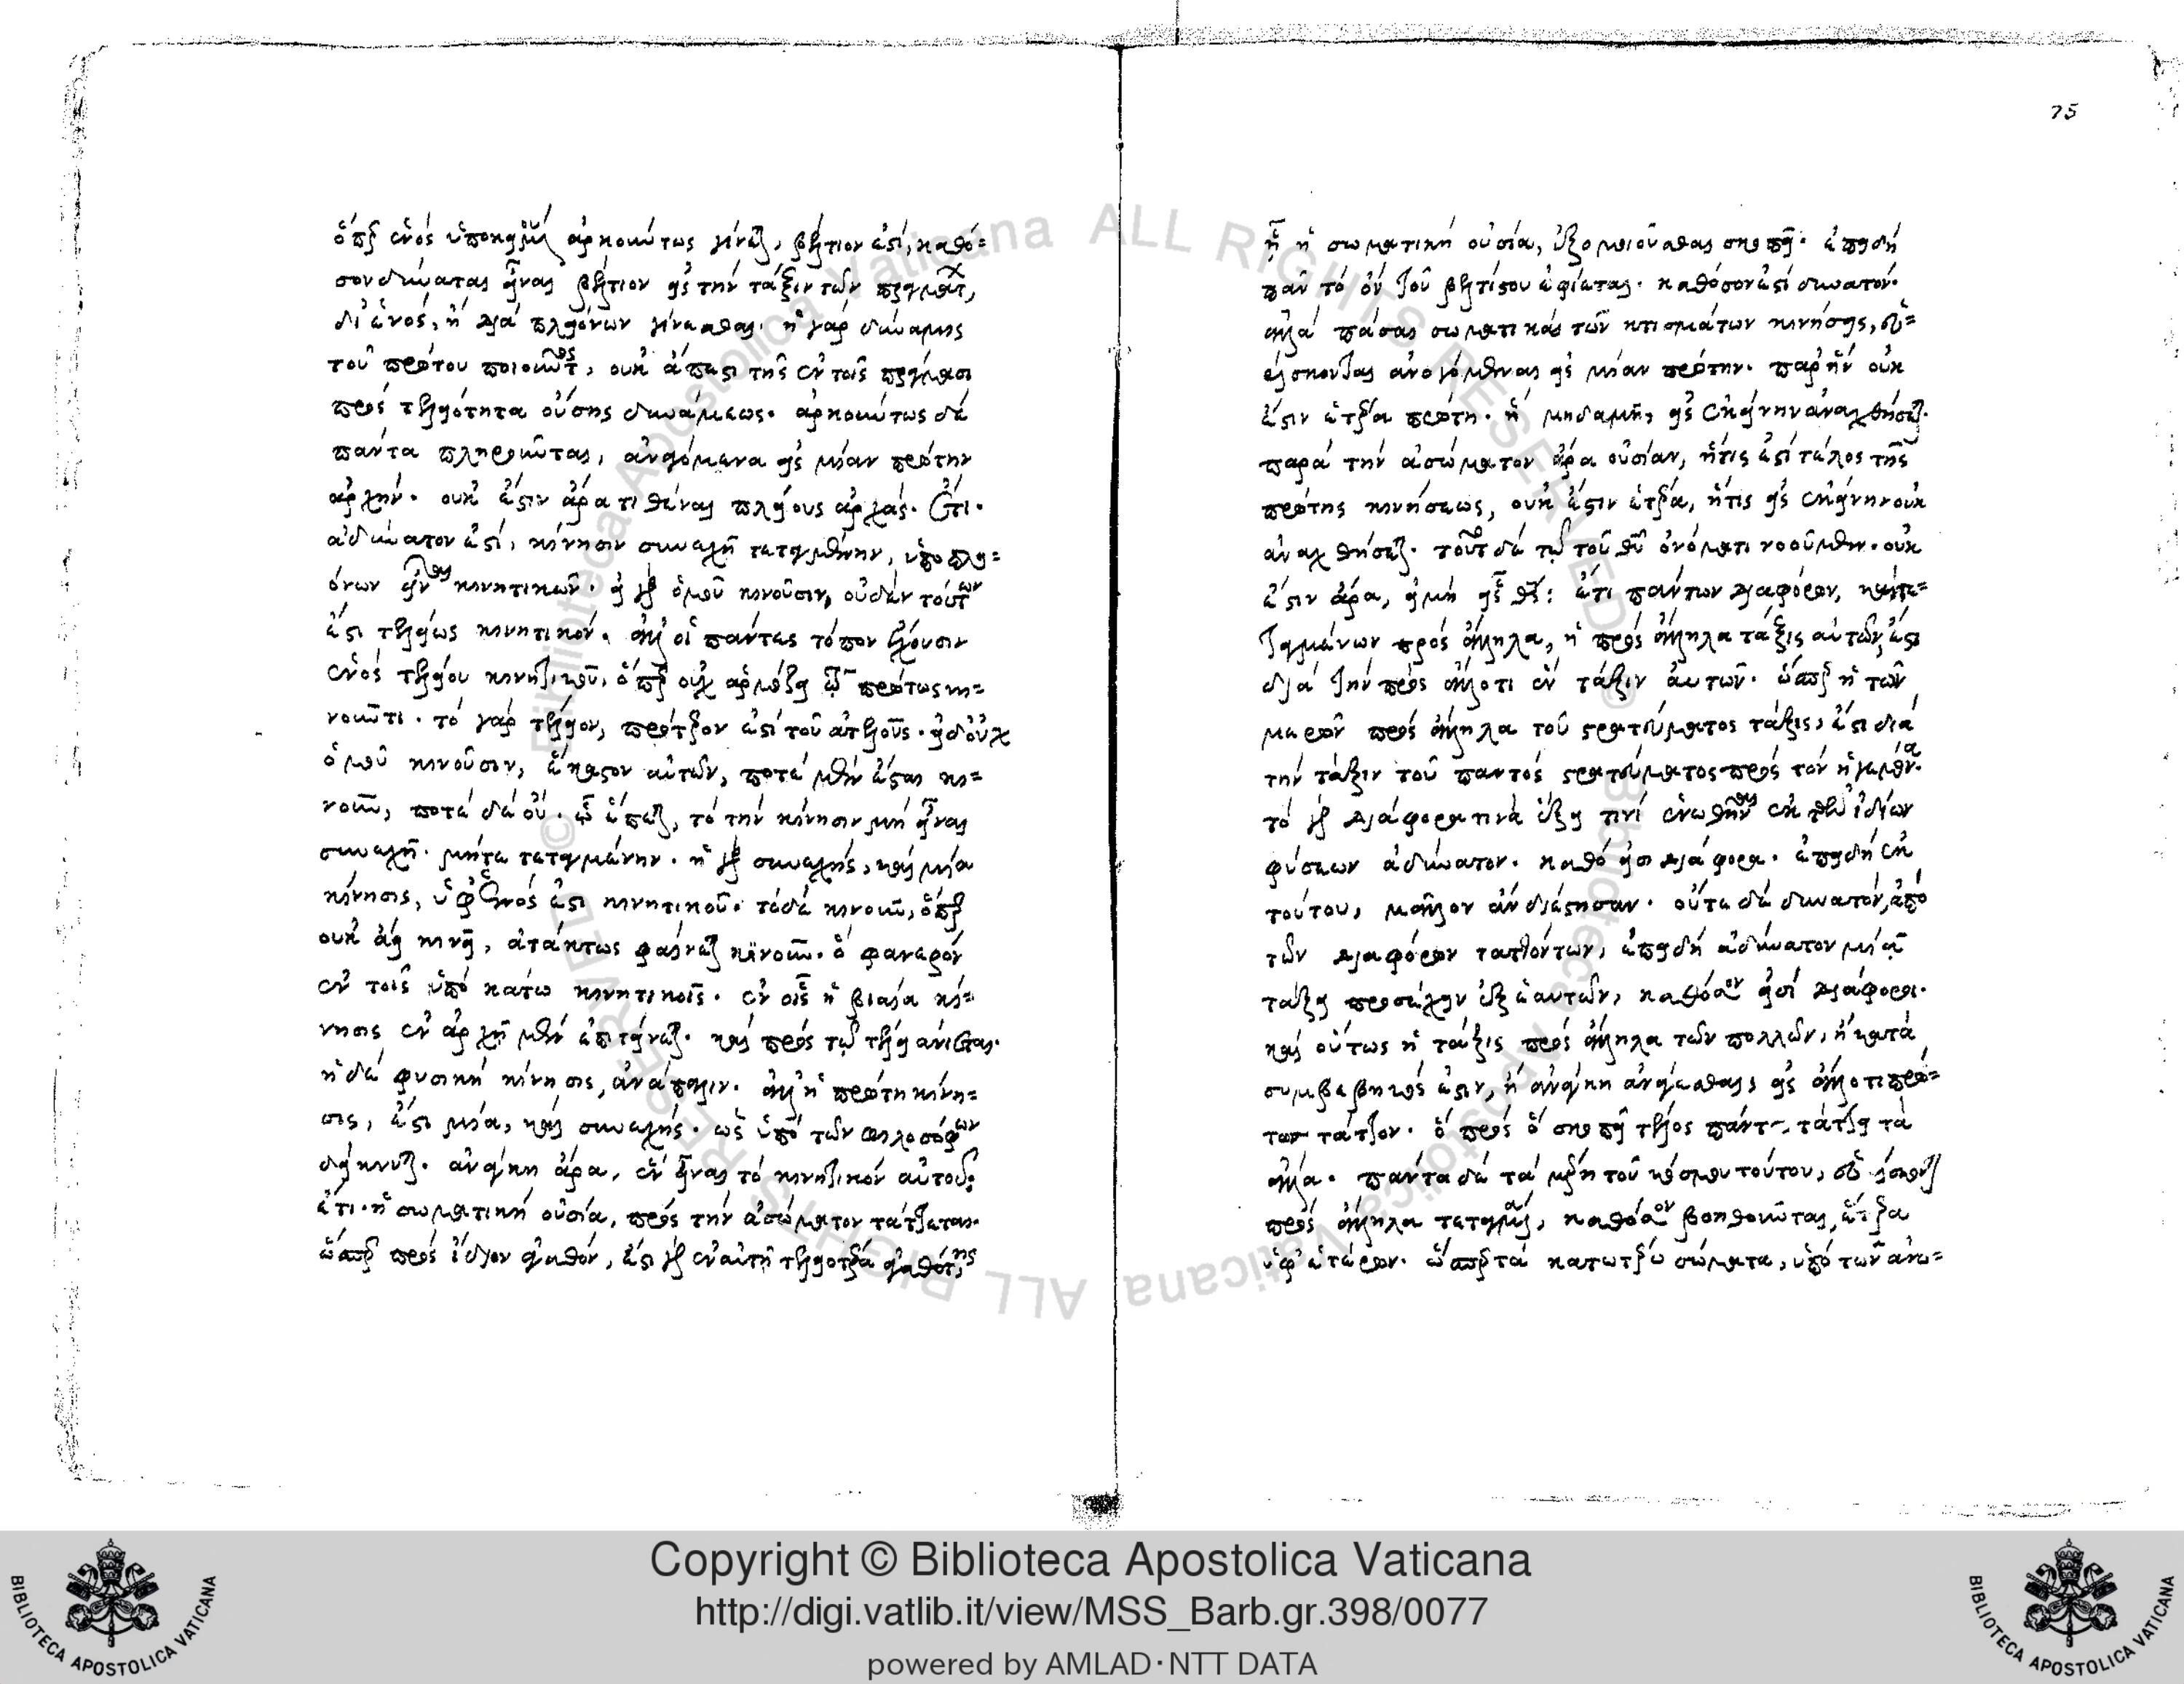 ὅπερ ἑνὸς ὑποκειμένου ἀρκούντως γίνεται, βέλτιόν ἐστι, καθό=
σον δύναται εἶναι βέλτιον εἰς τὴν τάξιν τῶν πραγμάτ,
δι' ἑνός, ἢ διὰ πλειόνων γίνεσθαι. ἡ γὰρ δύναμις
τοῦ πρώτου ποιοῦντος, οὐκ ἄπεστι τῆς ἐν τοῖς πράγμασι
πρὸς τελειότητα οὔσης δυνάμεως. ἀρκούντως δὲ
πάντα πληροῦται, ἀναγόμενα εἰς μίαν πρώτην
ἀρχήν. οὐκ ἔστιν ἄρα τιθέναι πλείους ἀρχάς. Ἔτι.
ἀδύνατόν ἐστι, κίνησιν συνεχῆ τεταγμένην, ὑπὸ πλει=
όνων εἶναι κινητικῶν. εἰ γὰρ ὁμοῦ κινοῦσιν, οὐδὲν τούτων
ἔστι τελείως κινητικόν. ἀλλ' οἱ πάντες τόπον ἔχουσιν
ἑνὸς τελείου κινητικοῦ, ὅπερ οὐχ ἁρμόζει ἐν πρώτως κι=
νοῦντι. τὸ γὰρ τέλειον, πρότερόν ἐστι τοῦ ἀτελοῦς. εἰ δ' οὐχ
ὁμοῦ κινοῦσιν, ἕκαστον αὐτῶν, ποτὲ μὲν ἔσται κι=
νοῦν, ποτὲ δὲ οὔ. ᾧ ἕπεται, τὸ τὴν κίνησιν μὴ εἶναι
συνεχῆ. μήτε τεταγμένην. ἡ γὰρ συνεχής, καὶ μία
κίνησις, ὑφ' ἑνός ἐστι κινητικοῦ. τόδε κινοῦν, ὅπερ
οὐκ ἀεὶ κινεῖ, ἀτάκτως φαίνεται κινοῦν. ὃ φανερὸν
ἐν τοῖς ὑπὸ κάτω κινητικοῖς. ἐν οἷς ἡ βιαία κί=
νησις ἐν ἀρχῇ μὲν ἐπιτείνεται. καὶ πρὸς τῷ τέλει ἀνίεται.
ἡ δὲ φυσικὴ κίνησις, ἀνάπαλιν. ἀλλ' ἡ πρώτη κίνη=
σις, ἔστι μία, καὶ συνεχής. ὡς ὑπὸ τῶν φιλοσόφων
δείκνυται. ἀνάγκη ἄρα, ἓν εἶναι τὸ κινητικὸν αὐτῆς
ἔτι. ἡ σωματικὴ οὐσία, πρὸς τὴν ἀσώματον τάττεται.
ὥσπερ πρὸς ἴδιον ἀγαθόν, ἔστι γὰρ ἐν αὐτῇ τελειοτέρα ἀγαθότης
75
ᾗ ἡ σωματικὴ οὐσία, ἐξομοιοῦσθαι σκοπεῖ. ἐπειδὴ
πᾶν τὸ ὂν τοῦ βελτίστου ἐφίεται. καθόσον ἐστὶ δυνατόν.
ἀλλὰ πᾶσαι σωματικαὶ τῶν κτισμάτων κινήσεις, εὑ=
ρίσκονται ἀναγόμεναι εἰς μίαν πρώτην. παρ' ἣν οὐκ
ἔστιν ἑτέρα πρώτη. ἢ μηδαμῆ, εἰς ἐκείνην ἀναχθήσεται.
παρὰ τὴν ἀσώματον ἄρα οὐσίαν, ἥτις ἐστὶ τέλος τῆς
πρώτης κινήσεως, οὐκ ἔστιν ἑτέρα, ἥτις εἰς ἐκείνην οὐκ
ἀναχθήσεται. τοῦτο δὲ τῷ τοῦ θεοῦ ὀνόματι νοοῦμεν. οὐκ
ἔστιν ἄρα, εἰ μὴ εἷς θεός: ἔτι πάντων διαφόρων, καὶ τε=
ταγμένων πρὸς ἄλληλα, ἡ πρὸς ἄλληλα τάξις αὐτῶν, ἔστι
διὰ τὴν πρὸς ἄλλο τι ἓν τάξιν αὐτῶν. ὥσπερ ἡ τῶν
μερῶν πρὸς ἄλληλα τοῦ στρατεύματος τάξις, ἔστι διὰ
τὴν τάξιν τοῦ παντὸς στρατεύματος πρὸς τὸν ἡγεμόνα.
τὸ γὰρ διάφορά τινα ἕξει τινὶ ἑνωθῆναι ἐκ τῶν ἰδίων
φύσεων ἀδύνατον. καθό εἰσι διάφορα. ἐπειδὴ ἐκ
τούτου, μᾶλλον ἂν διέστησαν. οὔτε δὲ δυνατόν, ἀπὸ
τῶν διαφόρων ταττόντων, ἐπειδὴ ἀδύνατον μιᾷ
τάξει προσέχειν ἐξ ἑαυτῶν, καθόσον εἰσὶ διάφοροι.
καὶ οὕτως ἡ τάξις πρὸς ἄλληλα τῶν πολλῶν, ἢ κατὰ
συμβεβηκός ἐστιν, ἢ ἀνάγκη ἀνάγεσθαι, εἰς ἄλλό τι πρῶ=
τον τάττον. ὃ πρὸς ὃ σκοπεῖ τέλος πάντα τάττει τὰ
ἄλλα. πάντα δὲ τὰ μέρη τοῦ κόσμου τούτου, εὑρίσκεται
πρὸς ἄλληλα τεταγμένα, καθόσον βοηθοῦνται, ἕτερα
ὑφ' ἑτέρων. ὥσπερ τὰ κατωτέρω σώματα, ὑπὸ τῶν ἀνω=
Copyright © Biblioteca Apostolica Vaticana
http://digi.vatlib.it/view/MSS_Barb.gr.398/0077
powered by AMLAD·NTT DATA